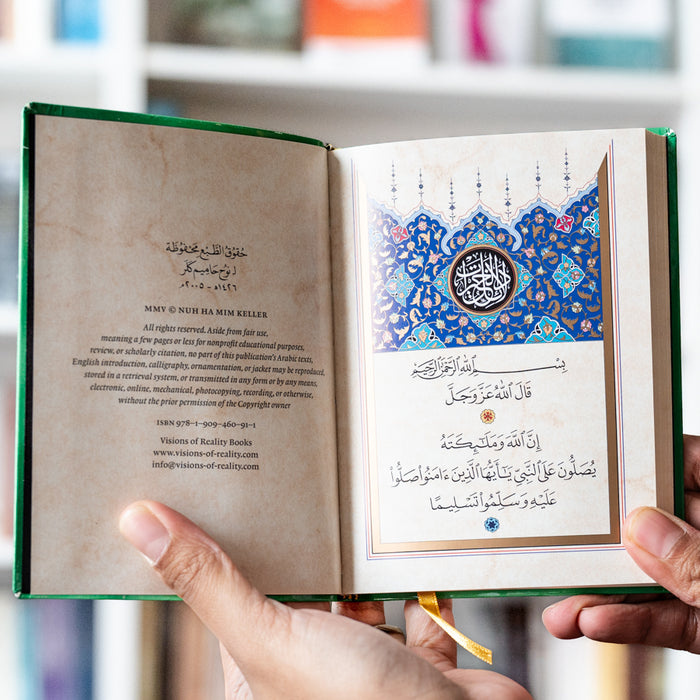 حقوق الطبع محفوظة
لـ نوح حاميم كلر
١٤٢٦هـ - ٢٠٠٥م
MMV © NUH HA MIM KELLER
All rights reserved. Aside from fair use,
meaning a few pages or less for nonprofit educational purposes,
review, or scholarly citation, no part of this publication's Arabic texts,
English introduction, calligraphy, ornamentation, or jacket may be reproduced,
stored in a retrieval system, or transmitted in any form or by any means,
electronic, online, mechanical, photocopying, recording, or otherwise,
without the prior permission of the Copyright owner
ISBN 978-1-909-460-91-1
Visions of Reality Books
www.visions-of-reality.com
info@visions-of-reality.com
بِسْمِ ٱللَّهِ ٱلرَّحْمَٰنِ ٱلرَّحِيمِ
قَالَ ٱللَّهُ عَزَّ وَجَلَّ
إِنَّ ٱللَّهَ وَمَلَٰٓئِكَتَهُ
يُصَلُّونَ عَلَى ٱلنَّبِيِّ يَٰٓأَيُّهَا ٱلَّذِينَ ءَامَنُوا۟ صَلُّوا۟
عَلَيْهِ وَسَلِّمُوا۟ تَسْلِيمًا